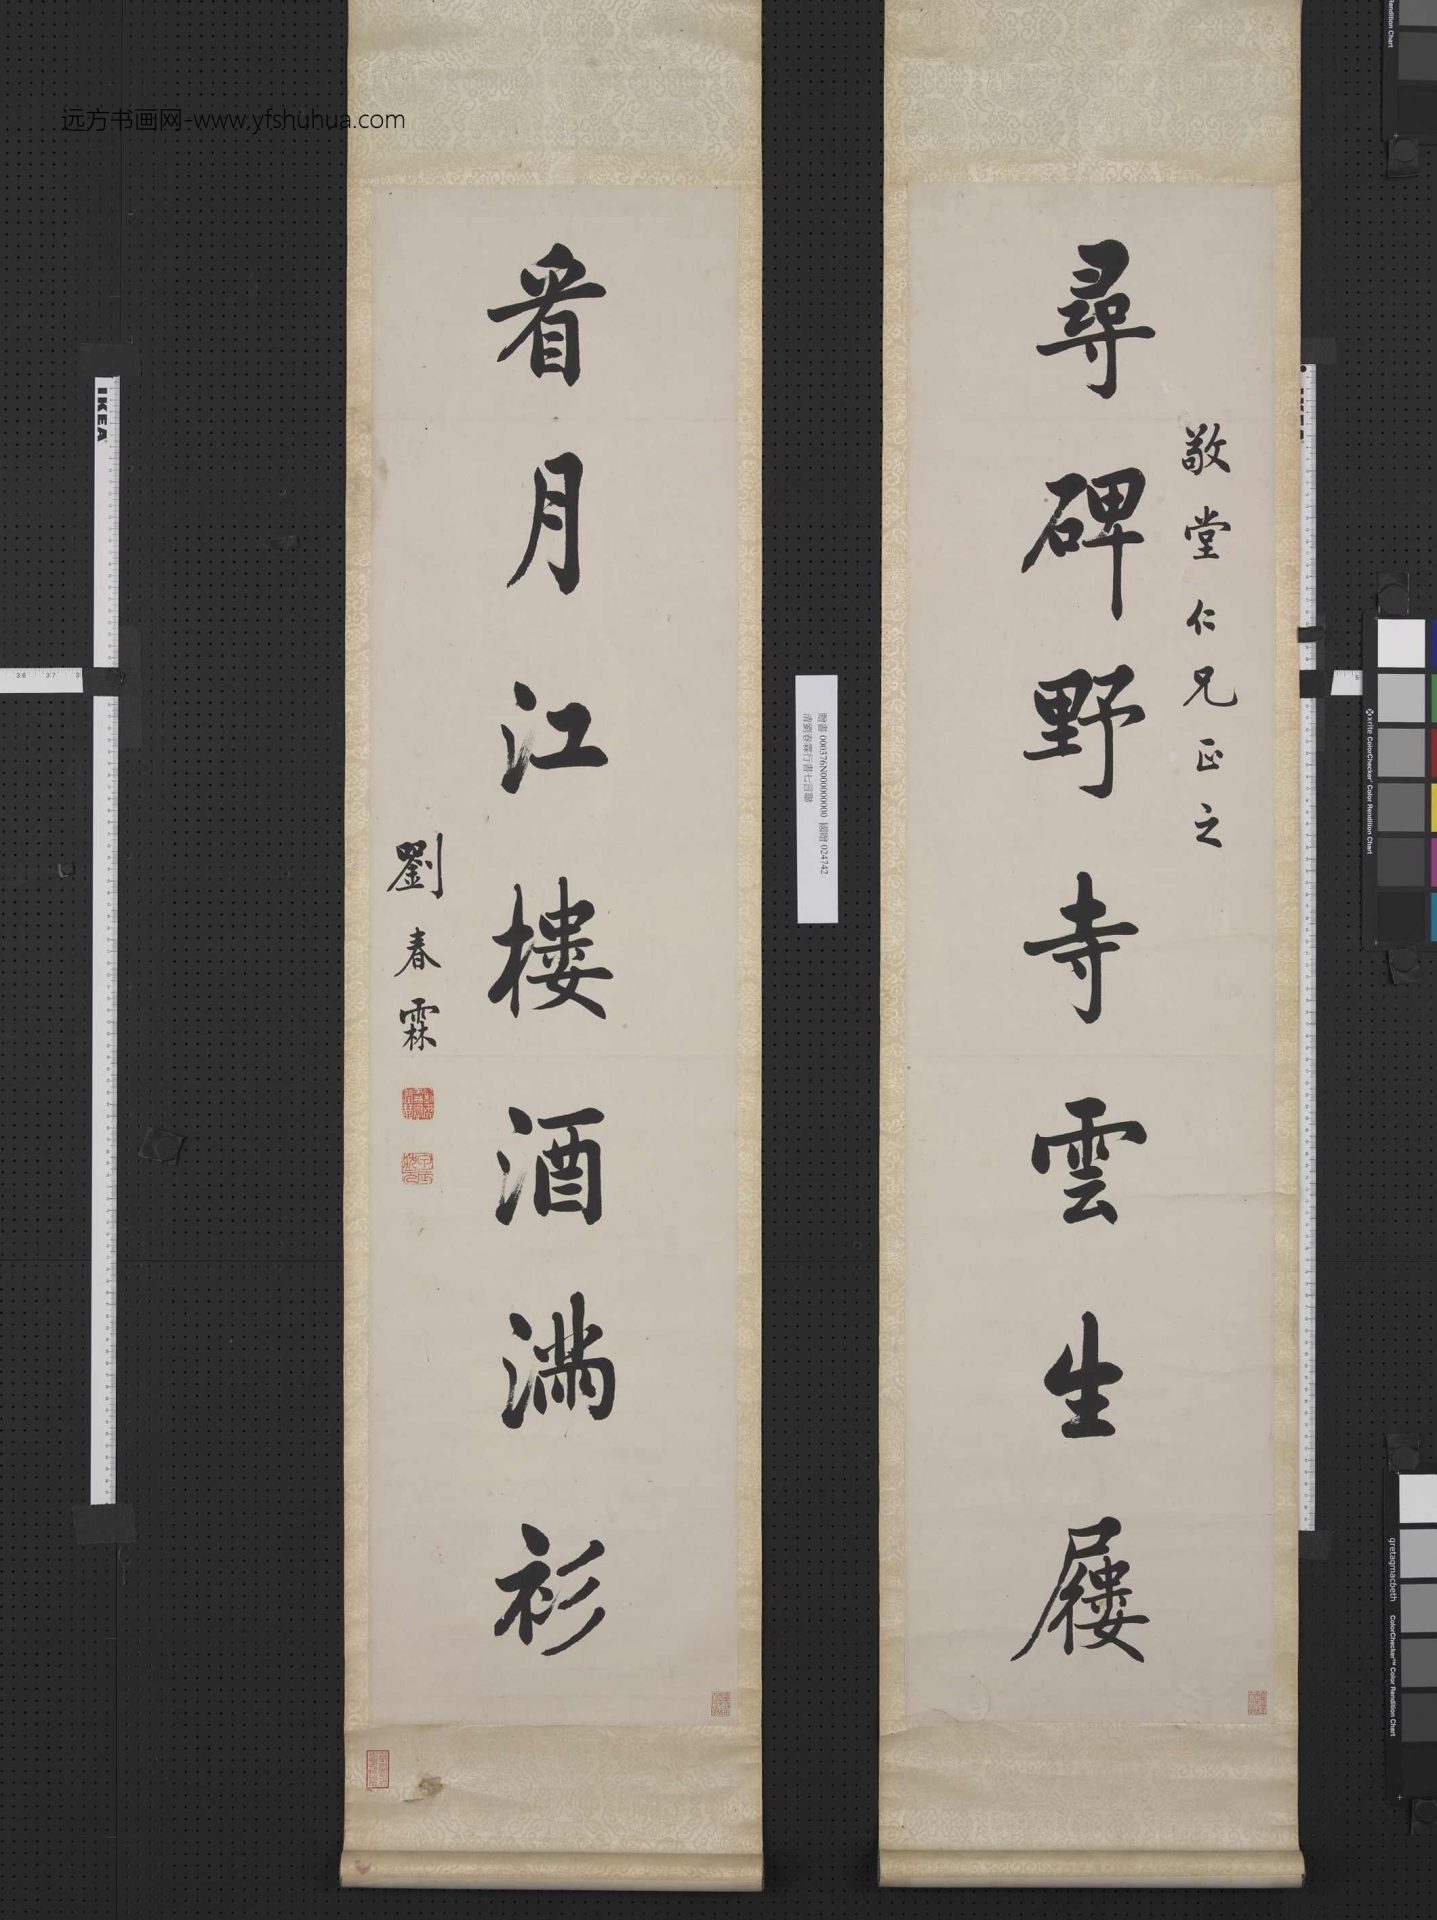 远方书画网-www.yfshuhua.com
尋碑野寺雲生屨
敬堂仁兄正之
看月江樓酒滿衫
劉春霖
贈書 000376N000000000 國贈 024742
清劉春霖行書七言聯
IKEA
36 37
x-rite ColorChecker Color Rendition Chart
gretagmacbeth ColorChecker Color Rendition Chart
Rendition Chart